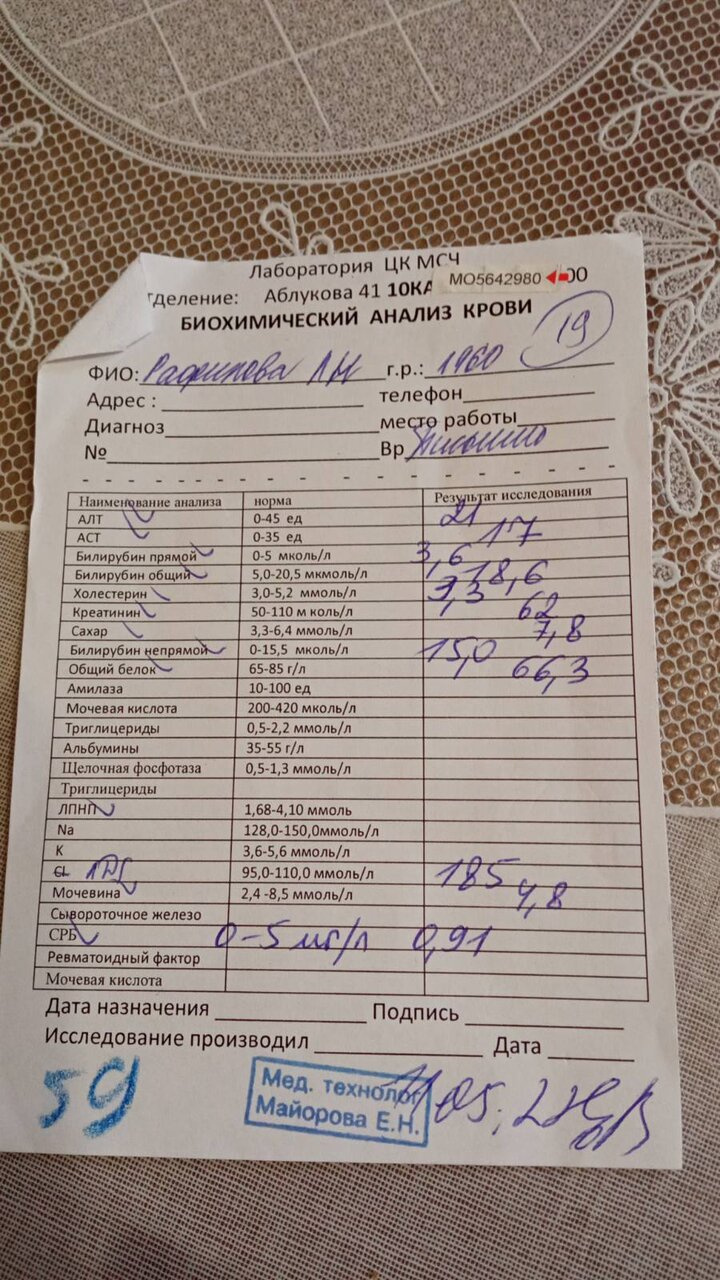 Лаборатория ЦК МСЧ
тделение: Аблукова 41 10КА МО5642980 00
БИОХИМИЧЕСКИЙ АНАЛИЗ КРОВИ
19
ФИО: ЛН г.р.: 1960
Адрес : телефон
Диагноз место работы
№ Вр
Наименование анализа норма Результат исследования
АЛТ 0-45 ед 21
АСТ 0-35 ед 17
Билирубин прямой 0-5 мколь/л 3,6
Билирубин общий 5,0-20,5 мкмоль/л 18,6
Холестерин 3,0-5,2 ммоль/л
Креатинин 50-110 м коль/л 62
Сахар 3,3-6,4 ммоль/л 7,8
Билирубин непрямой 0-15,5 мколь/л 15,0
Общий белок 65-85 г/л 66,3
Амилаза 10-100 ед
Мочевая кислота 200-420 мколь/л
Триглицериды 0,5-2,2 ммоль/л
Альбумины 35-55 г/л
Щелочная фосфотаза 0,5-1,3 ммоль/л
Триглицериды
ЛПНП 1,68-4,10 ммоль
Na 128,0-150,0ммоль/л
К 3,6-5,6 ммоль/л
CL ЛДГ 95,0-110,0 ммоль/л 185
Мочевина 2,4 -8,5 ммоль/л 4,8
Сывороточное железо
СРБ 0-5 мг/л 0,91
Ревматоидный фактор
Мочевая кислота
Дата назначения Подпись
Исследование производил Дата
59
Мед. технолог
Майорова Е.Н.
05.